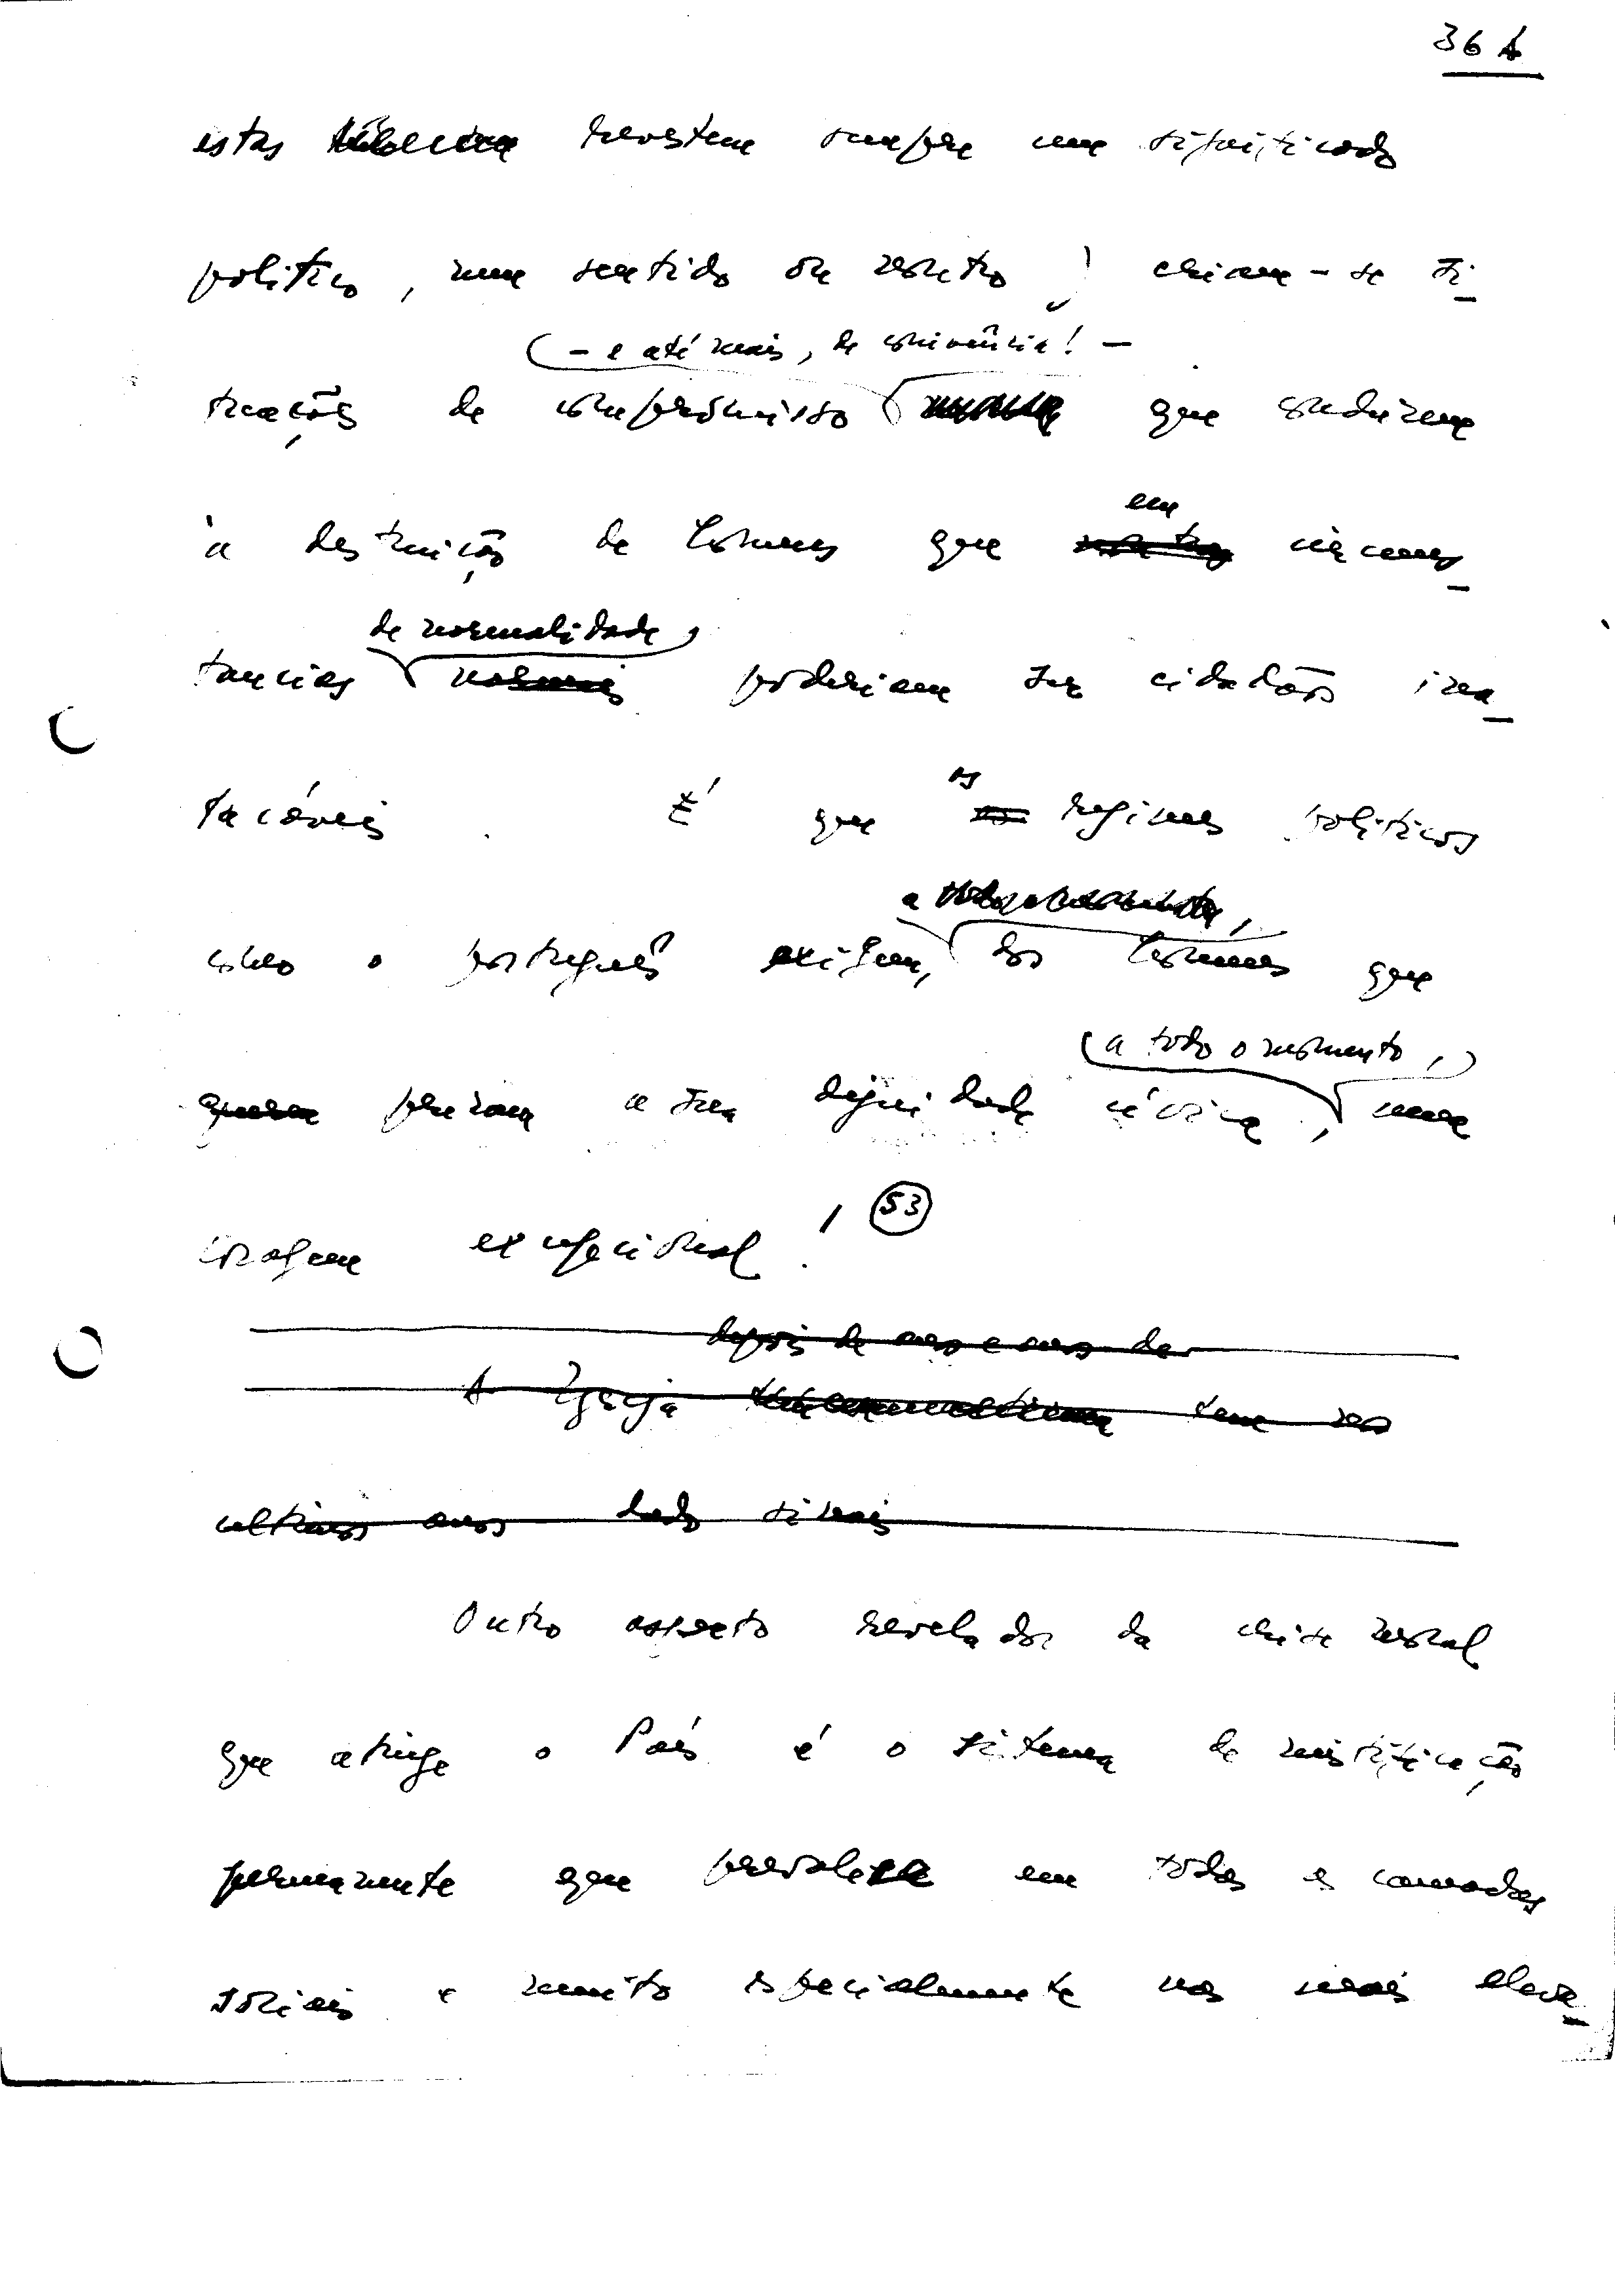 36 A
estas revestem sempre um significado
politico, num sentido ou noutro, criam-se si_
- e até mais, de conivência! -
tuações de compromisso que conduzem
à destruição de homens que
em
noutras circuns_
de normalidade,
tancias normais poderiam ser cidadãos ina_
tacáveis. É que os regimes politicos
como o português exigem, dos homens que
a todo o momento,
queiram prezam a sua dignidade cívica, uma
coragem excepcional! 53
depois de anos e anos de
A Igreja tem nos
ultimos anos dado sinais
Outro aspecto revelador da crise moral
que atinge o País é o sistema de mistificação
permanente que prevalece em todas as camadas
sociais e muito especialmente nas mais eleva_